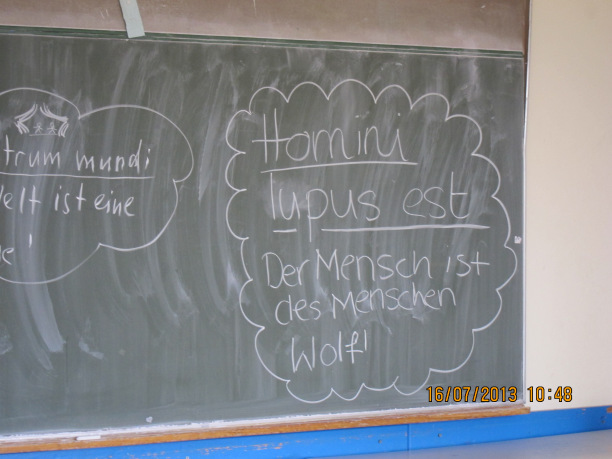 trum mundi
elt ist eine
e!
Homini
lupus est
Der Mensch ist
des Menschen
Wolf!
16/07/2013 10:48